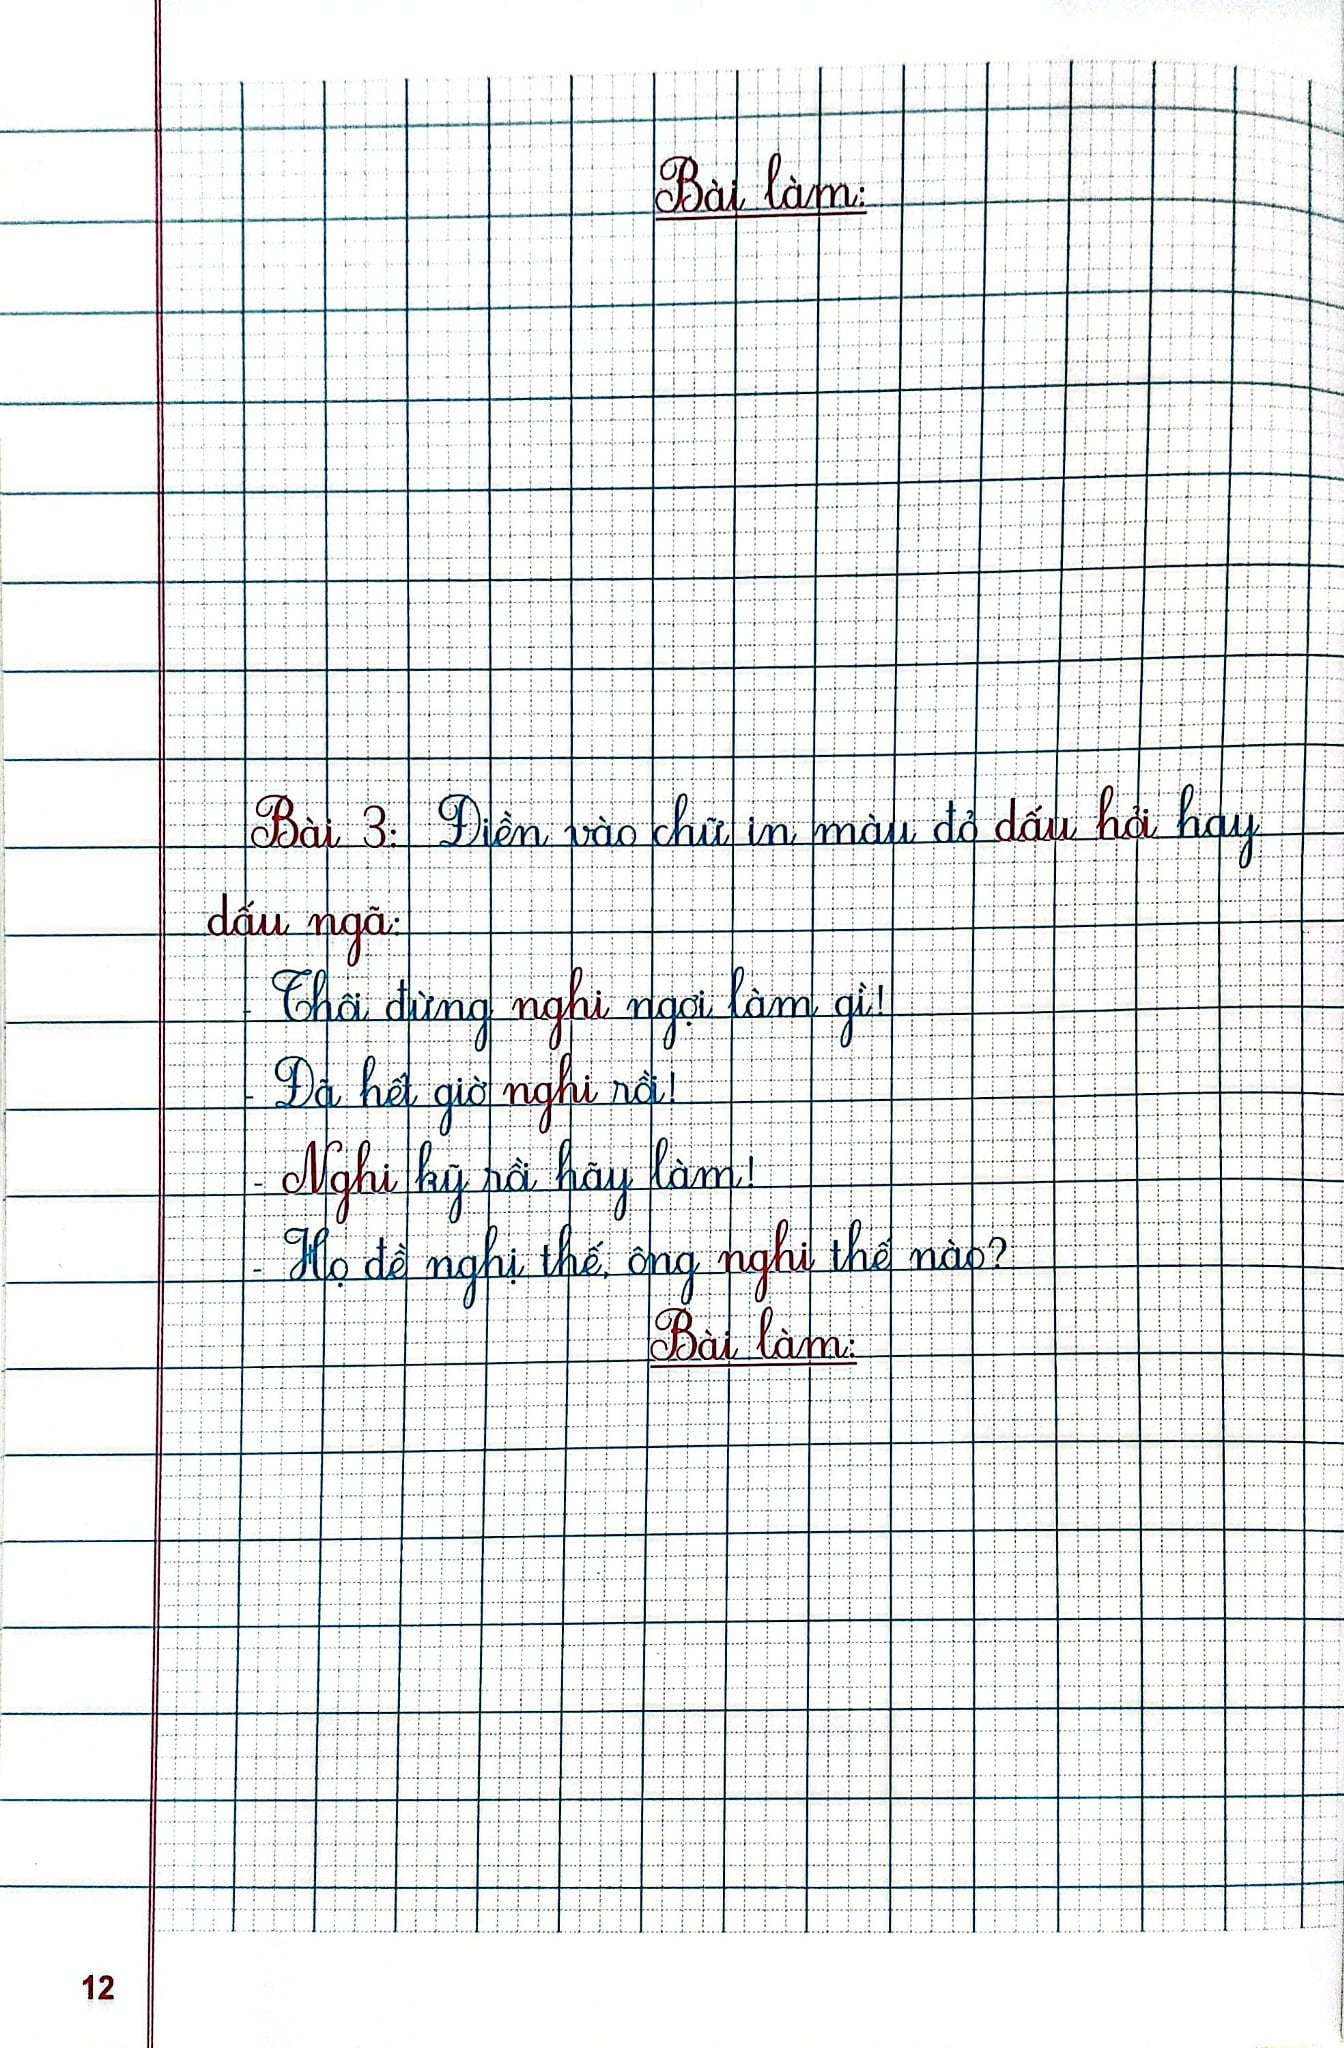 Bài làm:
Bài 3: Điền vào chữ in màu đỏ dấu hỏi hay
dấu ngã:
- Thôi đừng nghi ngợi làm gì!
- Đã hết giờ nghi rồi!
- Nghi kỹ rồi hãy làm!
- Họ đề nghị thế, ông nghi thế nào?
Bài làm:
12